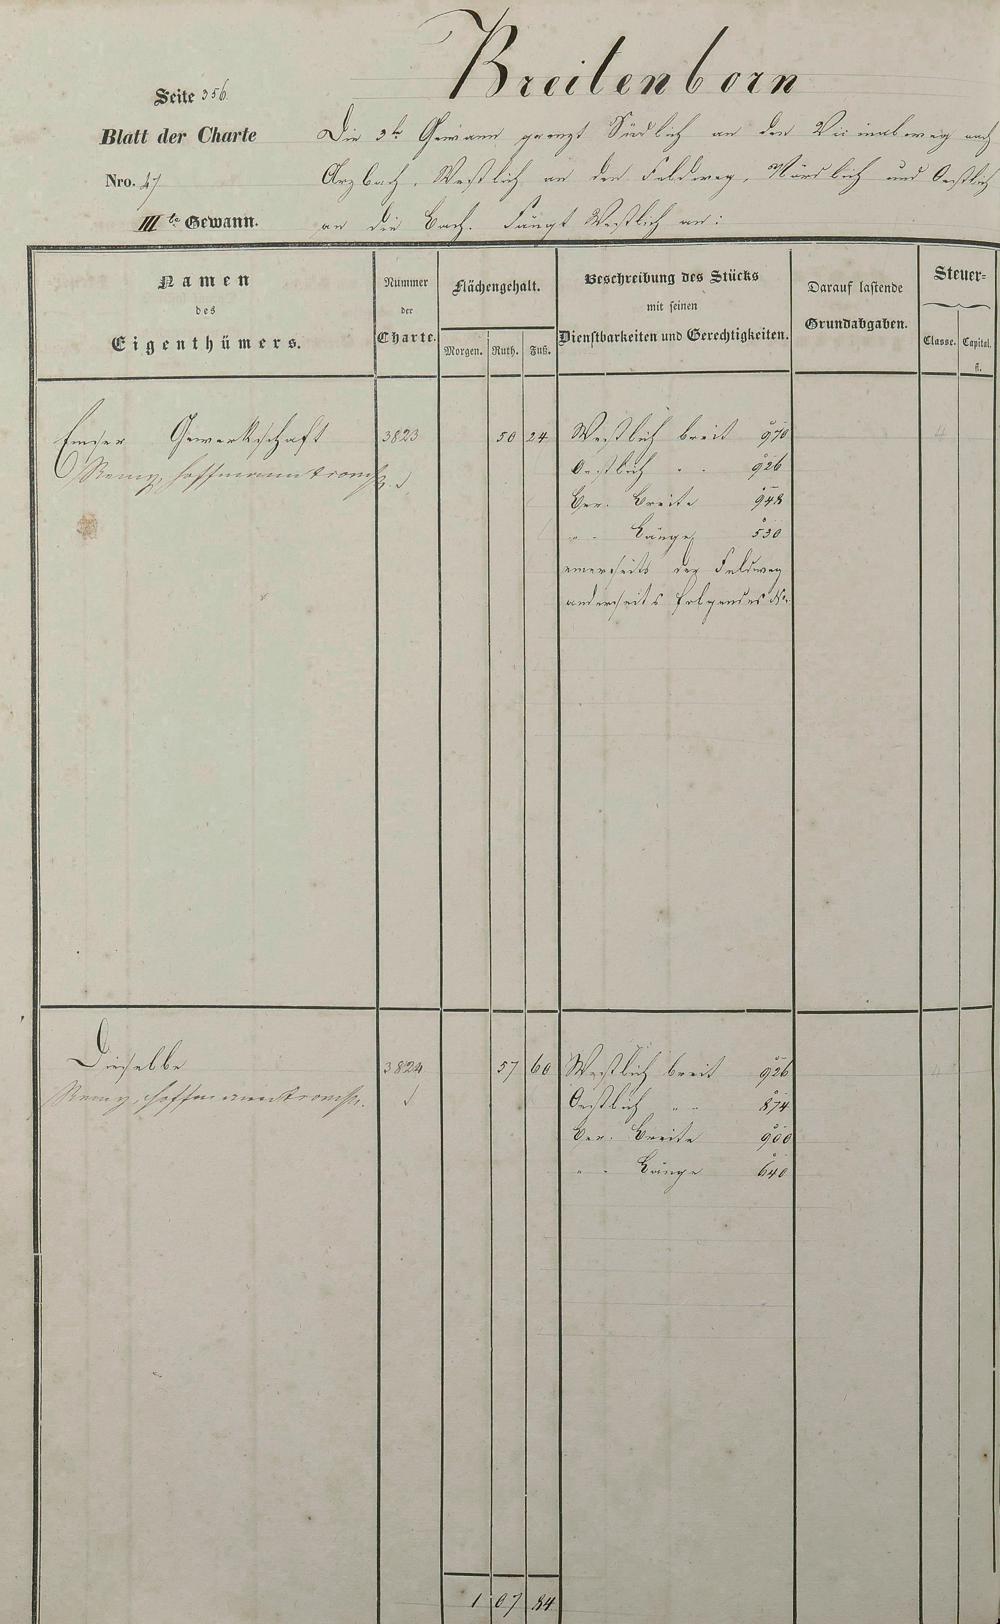 Breitenborn
Seite 356
Blatt der Charte
Nro. 47
IIIte Gewann.
Die 3te Gewann grenzt Südlich an den Vicinalweg nach
Arzbach, Westlich an den Feldweg, Nördlich und Oestlich
an die Bach. Fängt Westlich an:
Namen
des
Eigenthümers.
Nummer
der
Charte.
Flächengehalt.
Morgen. Ruth. Fuß.
Beschreibung des Stücks
mit seinen
Dienstbarkeiten und Gerechtigkeiten.
Darauf lastende
Grundabgaben.
Steuer=
Classe. Capital.
fl.
Emser Gewerkschaft 3823 50 24 Westlich breit 970 4
Remy, Hoffmann
Oestlich " " 926
Ber. Breite 948
" " Länge 530
einerseits der Feldweg
anderseits folgendes No.
Dieselbe 3824 57 60 Westlich breit 926 4
Remy, Hoffmann
Oestlich " " 874
Ber. Breite 900
" " Länge 640
1 07 84